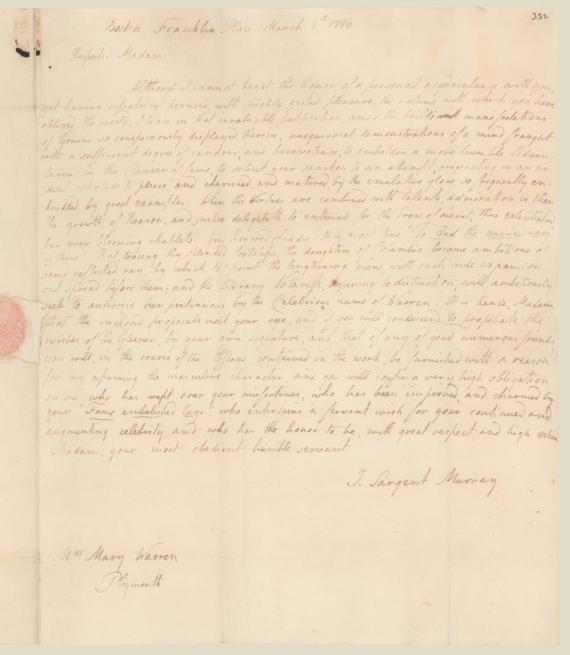 332
Boston Franklin Place March 4th 1796
Respected Madam
Although I cannot boast the honor of a personal acquaintance with you,
yet having repeatedly perused, with highly excited pleasure, the volume with which you have
obliged the world, I trace in that invaluable publication, amid the brilliant manifestations
of Genius so conspicuously displayed therein, unequivocal demonstrations of a mind fraught
with a sufficient degree of candour and benevolence, to embolden a more humble Adven
turer in the Career of fame, to solicit your sanction to an attempt, originating in an ar
dent solicitude to please and cherished, and matured by the emulative glow, so frequently en-
kindled by great examples. When the Virtues are combined with talents, admiration is then
the growth of Reason, and justice delighteth to enthrone for the brows of merit, thus established
her ever blooming chaplets. honored Leader. It is most true to lead the way
is thine But, tracing thy splendid footsteps, the daughters of Columbia become ambitious of
some reflected ray, by which to point the lengthening view with such wide expansion
out spread before them; and the literary aspiring to distinction, will ambitiously
seek to authorize her pretensions by the Celebrious name of Warren. It is hence, Madam
that the inclosed proposals meet your eye, and if you will condescend to propitiate the
wishes of the Gleaner, by your own signature, and that of any of your numerous friends
you will in the course of the Essays contained in the work be furnished with a reason
for my assuming the masculine character, and you will confer a very high obligation
on one who has wept over your misfortunes, who has been improved, and charmed by
your "Fame embellished Page" who entertains a fervent wish for your continued and
augmenting celebrity, and who has the honor to be, with great respect, and high esteem
Madam, your most obedient humble servant
J. Sargent Murray
Mrs Mary Warren
Plymouth